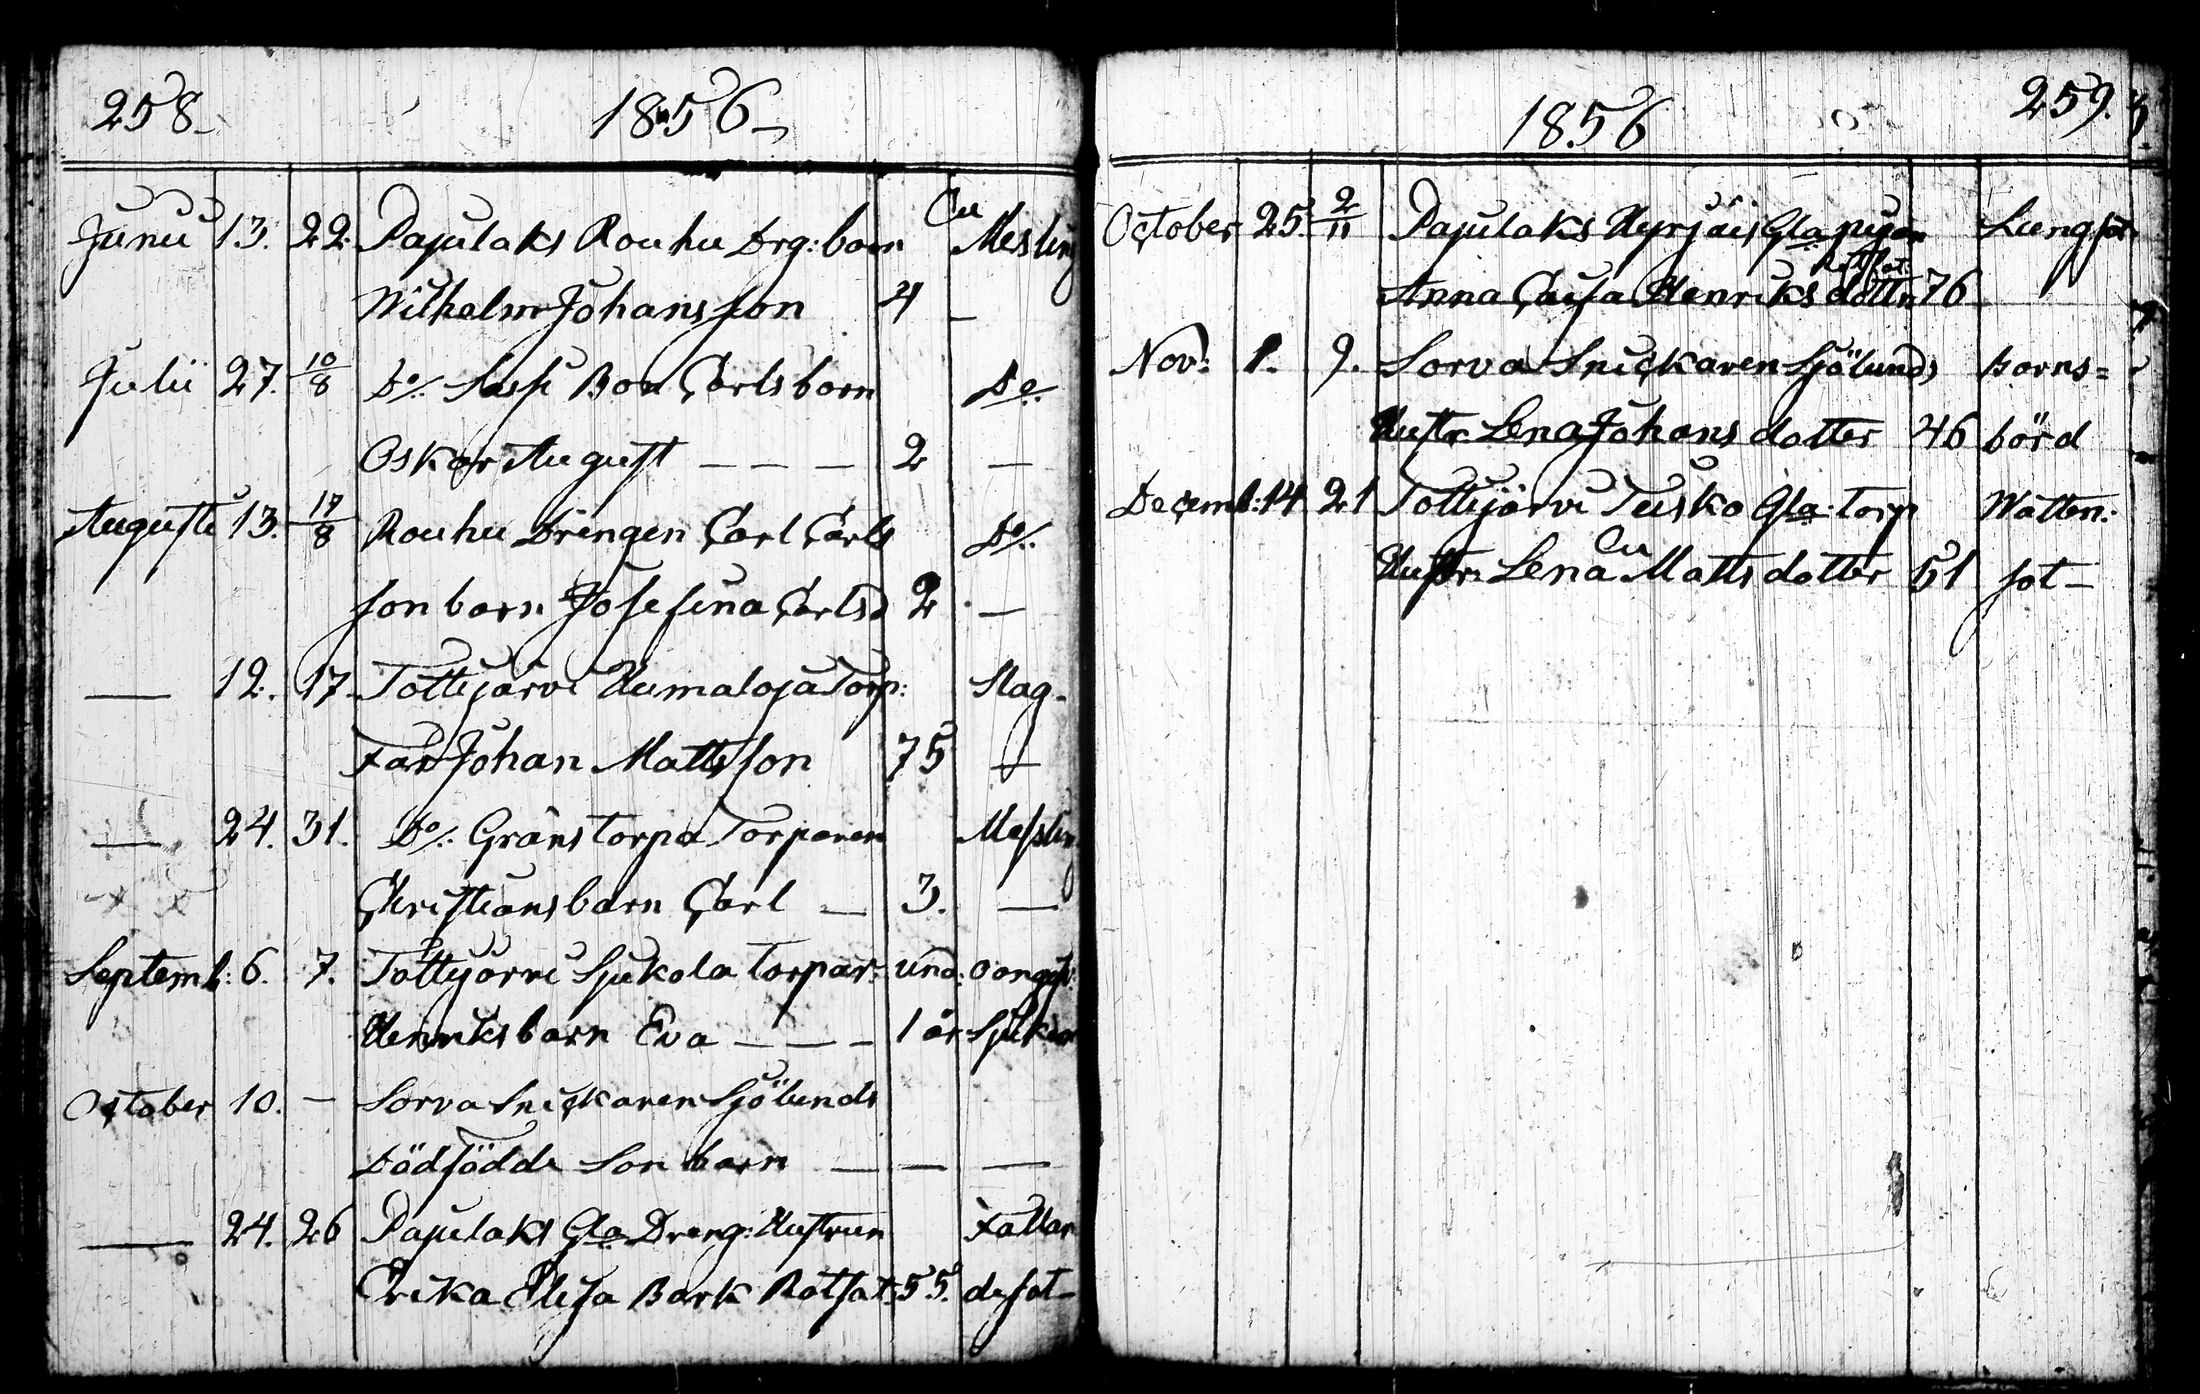 258
1856
Cu
Junii 13. 22. Pajulaks Rouhu Drg: barn Messling
Wilhelm Johansson 4 –
Julii 27. 10/8 Do/. Sassi Bon Carls barn Do.
Oskar August – – – 2 –
Augusti 13. 17/8 Rouhu Drengen Carl Carls Do/.
son barn Josefina Carlsd 2 –
– 12. 17. Tottijärvi Humaloja Torp: Slag-
Far Johan Mattsson 75 –
– 24. 31. Do/. Gränstorpa Torparen Messling
Christians barn Carl – 3. –
Septemb: 6. 7. Tottijärvi Sjukola torpar: und: oangif:
Henriks barn Eva – – – 1 år Sjukdom
October 10. – Sorva Snickaren Sjölunds
dödfödde Son barn – – –
– 24. 26 Pajulaks Gla Dreng: Hustrun Fallan
Erika Elisa Bork Rotfat: 55. desot–
259.
1856
October 25. 2/11 Pajulaks Hyrjäis Gla pigan Lungsot
Rotfat:
Anna Caisa Henriks dotter 76
Nov: 1. 9. Sorva Snickaren Sjölunds Barns=
Hustr. Lena Johans dotter 46 börd
Decemb: 14 21 Tottijärvi Tusko Gla: torp Watten:
Cu
Hustr. Lena Matts dotter 51 sot–